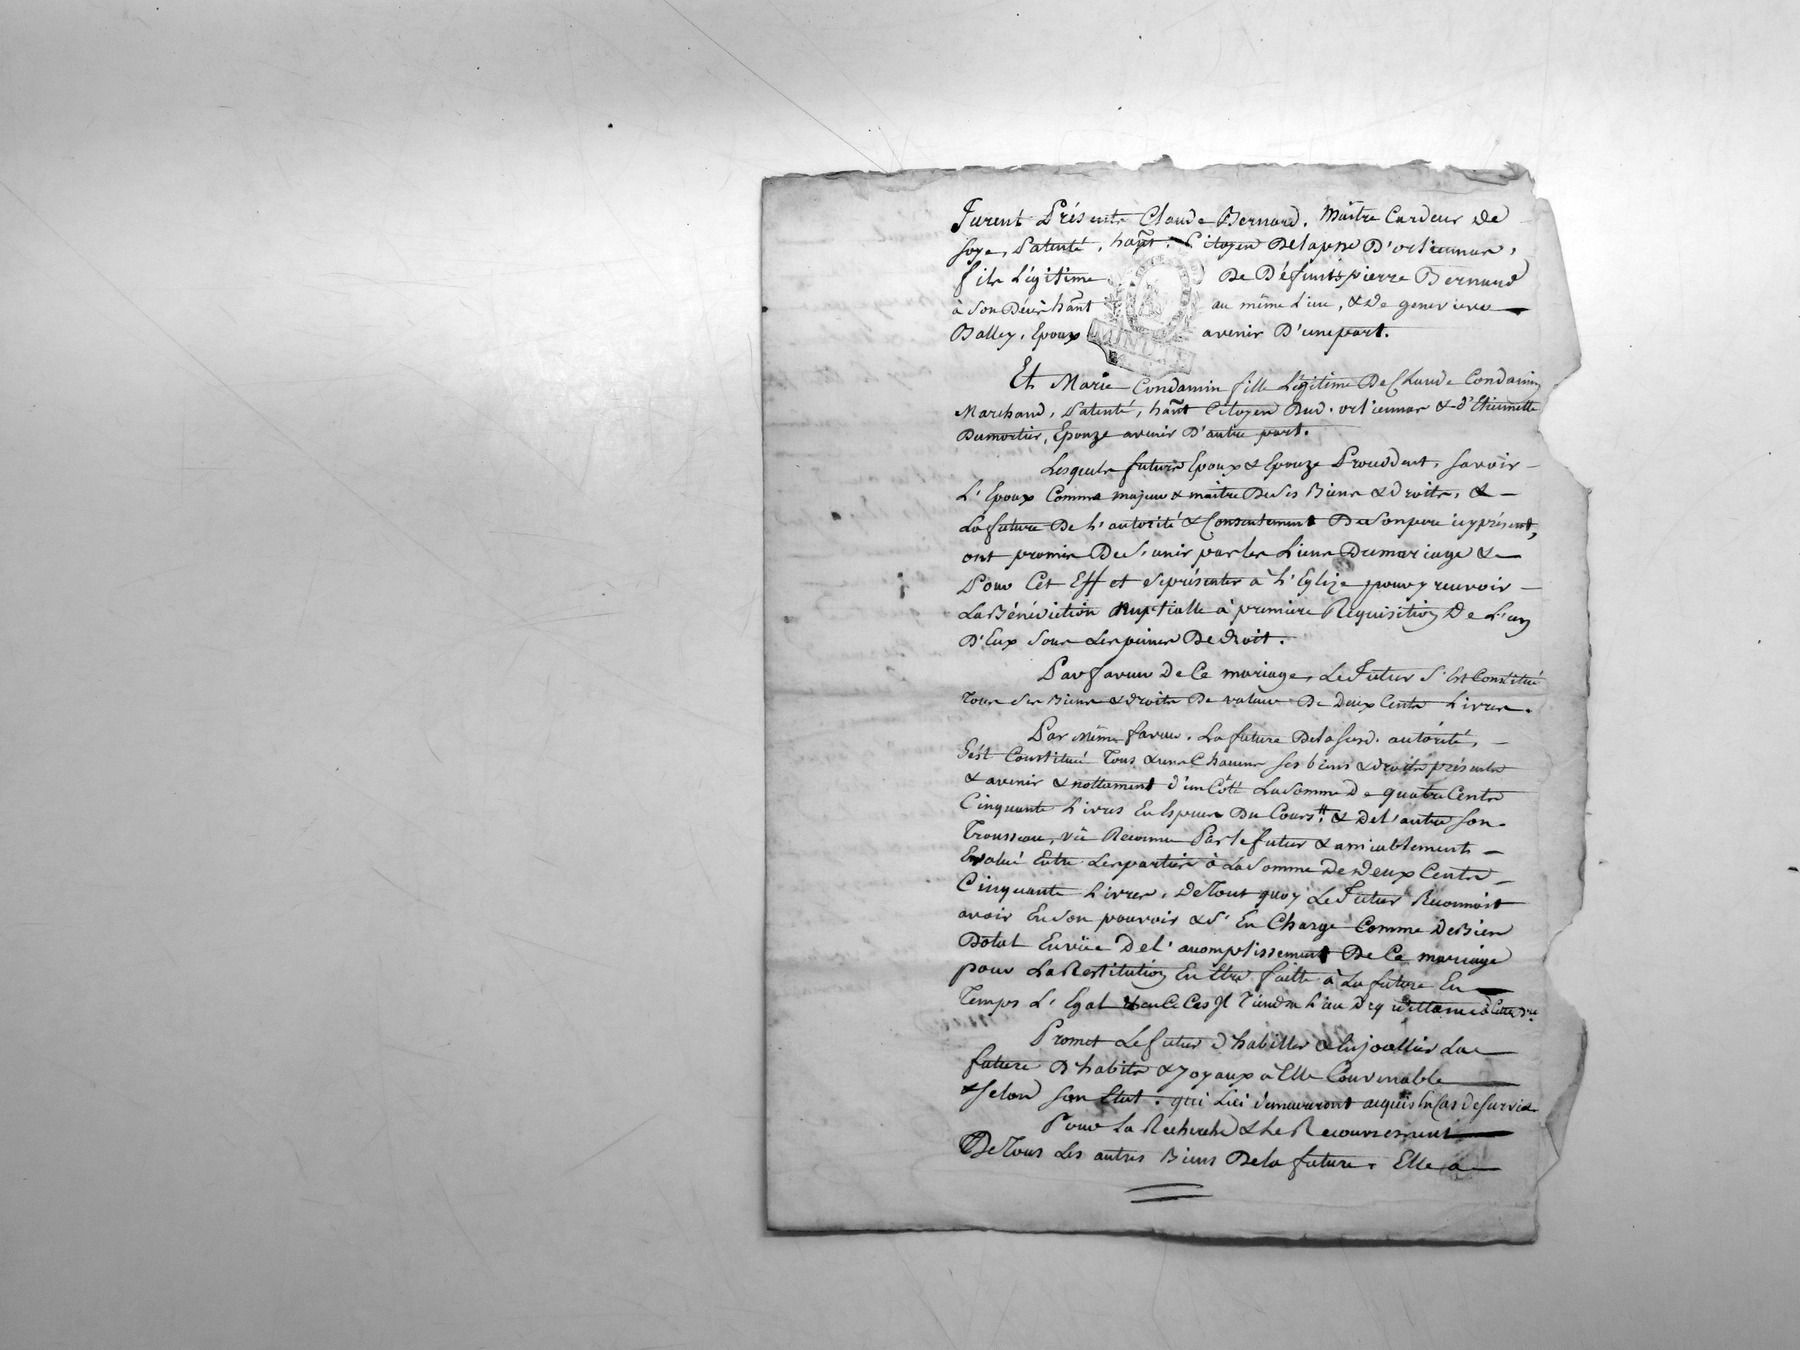 Furent Présents Claude Bernard, Maître Cardeur de
soye, Patenté, hañt. Citoyen Delapsse D'orliennar,
fils Légitime De Défunts pierre Bernard
à Son Décès hañt au même Lieu, & de genevieve
Balley, Epoux avenir D'une part.
Et Marie Condamin fille Légitime De Claude Condamin
Marchand, Patenté, hañt Citoyen Dud. orliennar & d'Etiennette
Dumortier, Epouze avenir D'autre part.
Lesquels futurs Epoux & Epouze Procèdent, savoir
L'Epoux Comme majeur & maître De ses Biens & droits, &
La future De L'autorité & Consentement De Son pere icy présent,
ont promis De S'unir par les Liens Du mariage &
Pour Cet Effet se présenter à L'Eglize pour y recevoir
La Bénédiction Nuptialle à premiere Requisition De L'un
D'Eux Sous Les peines De droit.
Par faveur De Ce mariage, Le Futur S'est Constitué
Tous Ses Biens & droits De valeur De Deux Cents Livres.
Par Même faveur, La future De la susd. autorité,
S'est Constitué Tous & uns Chacuns ses biens & droits présents
& avenir & nottament d'un Côté La Somme De quatre Cents
Cinquante Livres En Espèces Du Cours. & De L'autre Son
Trousseau, vû Reconnu Par le futur & amiablement
Evalué Entre Les parties à La Somme De Deux Cents
Cinquante Livres, De Tout quoy Le Futur Reconnoit
avoir En Son pouvoir & S'En Charge Comme De Bien
Dotal En vûe De L'accomplissement De Ce mariage
pour La Restitution En Etre faitte à La future En
Temps L'Egal & au Ce Cas Il Tiendra Lieu De
Promet Le futur d'habiller & Enjoaillier La
future D'habits & Joyaux à Elle Convenable
& Selon Son Etat. qui Lui demeureront acquis En Cas De Survie
Pour La Recherche & Le Recouvrement
De Tous Les autres Biens De La future, Elle a